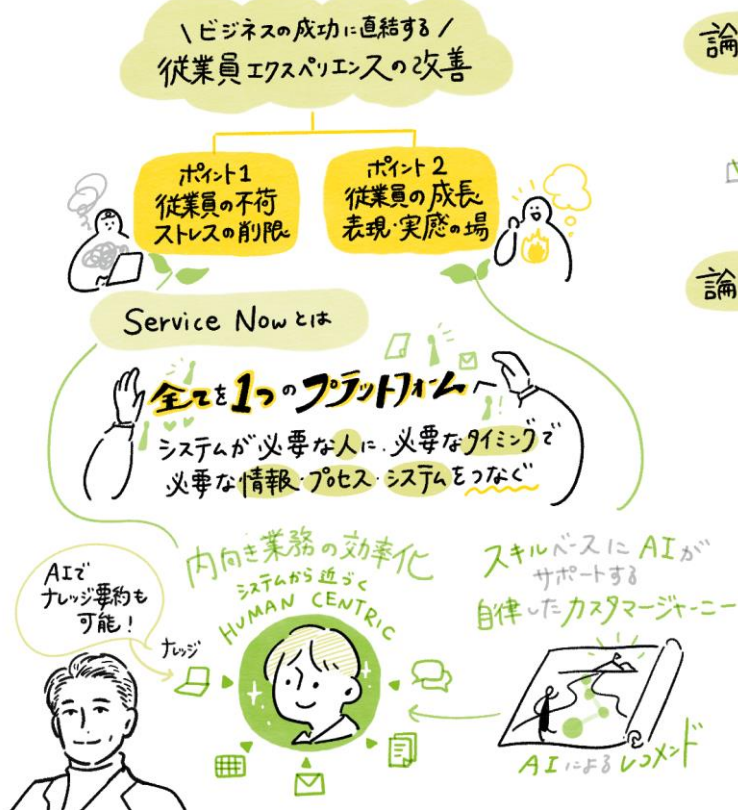 \ ビジネスの成功に直結する /
従業員エクスペリエンスの改善
論
ポイント1
従業員の不荷
ストレスの削限
ポイント2
従業員の成長
表現・実感の場
論
Service Nowとは
全てを1つのプラットフォームへ
システムが必要な人に、必要なタイミングで
必要な情報・プロセス・システムをつなぐ
内向き業務の効率化
システムから近づく
HUMAN CENTRIC
AIで
ナレッジ要約も
可能!
ナレッジ
スキルベースにAIが
サポートする
自律したカスタマージャーニー
AIによるレコメンド